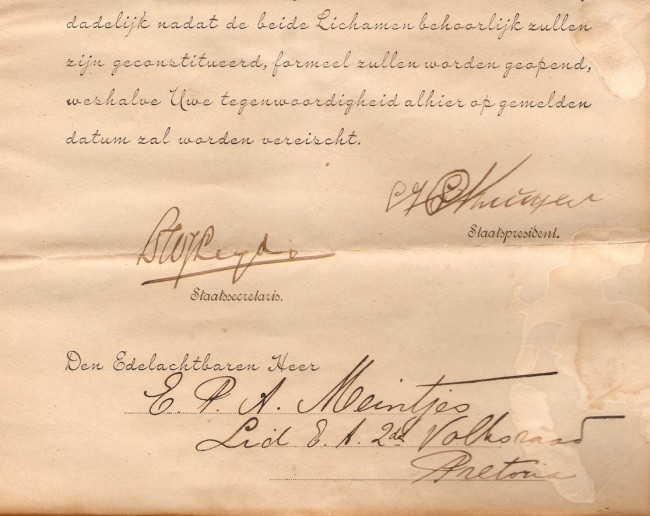 dadelijk nadat de beide Lichamen behoorlijk zullen
zijn geconstitueerd, formeel zullen worden geopend,
weshalve Uwe tegenwoordigheid alhier op gemelden
datum zal worden vereischt.
Staatspresident.
Staatssecretaris.
Den Edelachtbaren Heer
E. P. A. Meintjes
Lid E. A. 2de Volksraad
Pretoria